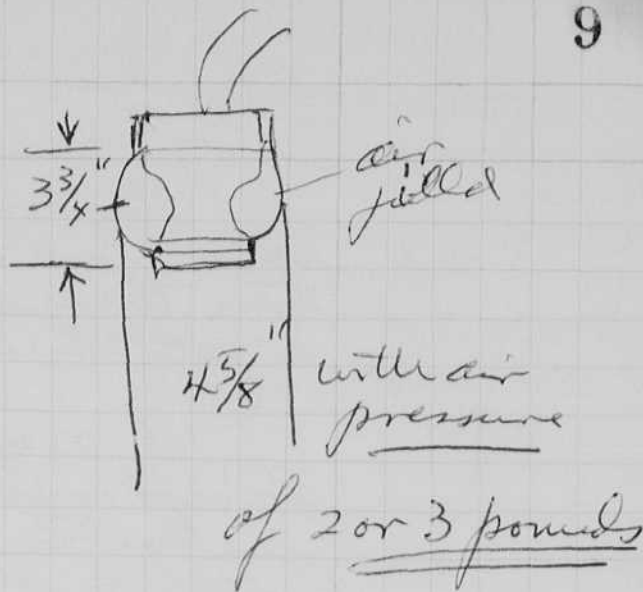 9
air
filled
3 3/4"
4 5/8"
with air
pressure
of 2 or 3 pounds